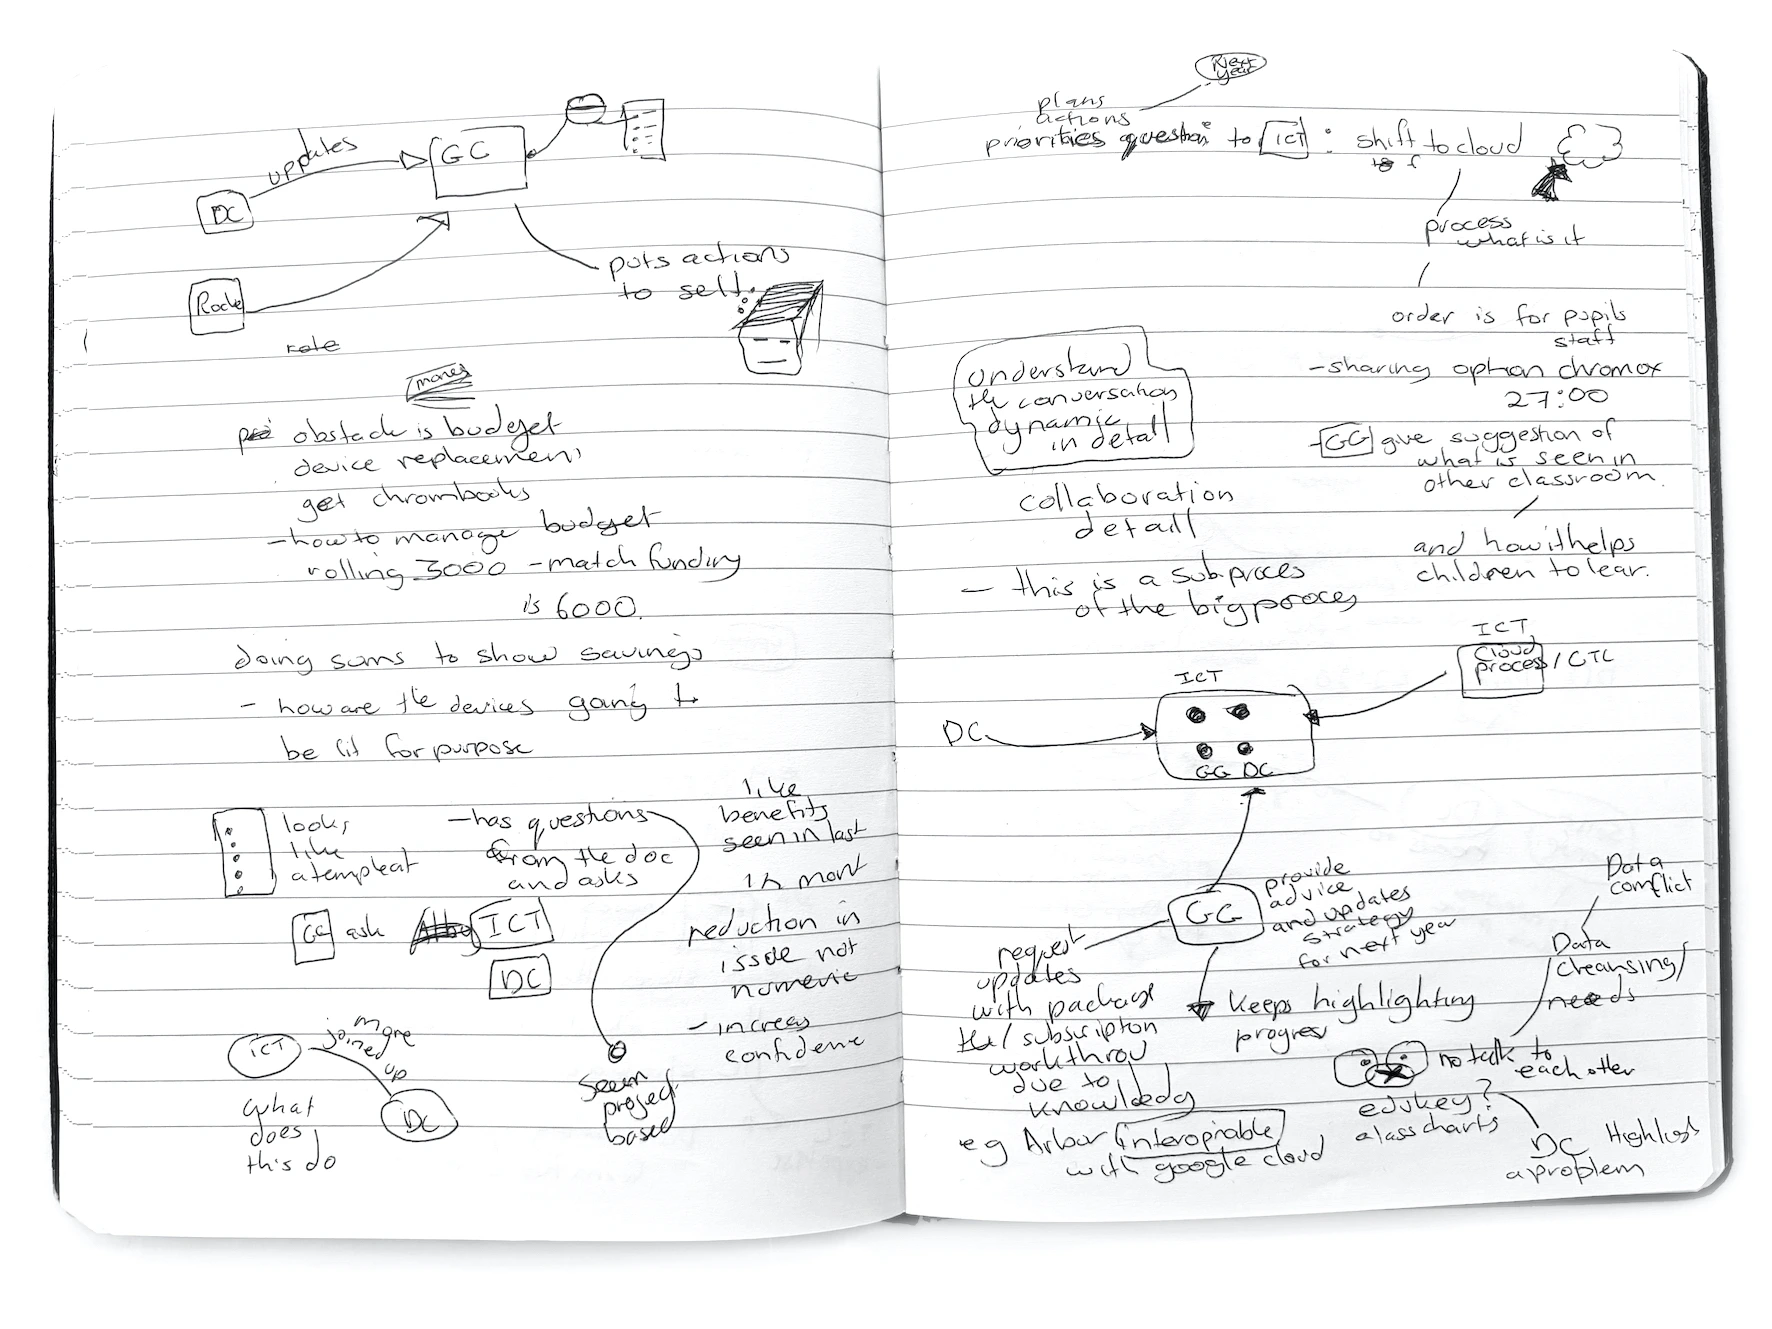 updates
GC
DC
puts actions
to self.
role
money
obstacle is budget
device replacement
get chrombooks
- how to manage budget
rolling 3000 - match funding
is 6000.
doing sums to show savings
- how are the devices going to
be fit for purpose
looks
like
a templeat
- has questions
from the doc
and asks
GC ask ICT
DC
like
benefits
seen in last
reduction in
issue not
numeric
- increas
confidence
ICT
more
joined
up
DC
what
does
this do
Seem
project
based
Next
year
plans
actions
priorities question to ICT : shift to cloud
process
what is it
order is for pupils
staff
- sharing option chromox
27:00
- GC give suggestion of
what is seen in
other classroom.
and how it helps
children to lear.
understand
the conversation
dynamic
in detail
collaboration
detail
- this is a subproces
of the big proces
ICT
cloud
process / CTL
ICT
DC
GG DC
GG
provide
advice
and updates
strategy
for next year
request
updates
with package
the / subscription
workthrou
due to
knowledg
eg Arbor interoprable
with google cloud
keeps highlighting
progres
Data
conflict
Data
cleansing /
needs
no talk to
each other
edukey?
class charts
DC Highlish
a problem